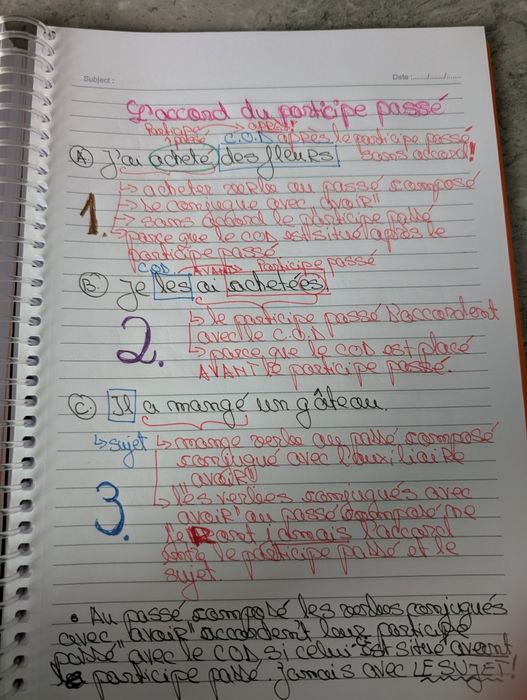 Subject :
Date :....../....../......
L'accord du participe passé
Participe passé → après!
C.O.D après le participe passé sans accord!
A. J'ai acheté des fleurs
1.
↳ acheter verbe au passé composé
↳ Se conjugue avec "avoir"
↳ sans accord le participe passé
parce que le COD est situé après le
participe passé
COD AVANT Participe passé
B. Je les ai achetées.
2.
↳ le participe passé s'accordent
avec le C.O.D
↳ parce que le COD est placé
AVANT le participe passé.
C. Il a mangé un gâteau.
↳ sujet
↳ mange verbe au passé composé
conjugué avec l'auxiliaire
avoir"
3.
↳ les verbes conjugués avec
"avoir" au passé composé ne
font jamais l'accord
le participe passé et le
sujet.
• Au passé composé les verbes conjugués
avec "avoir" accordent leur participe
passé avec le COD si celui est situé avant
le participe passé. jamais avec LE SUJET!